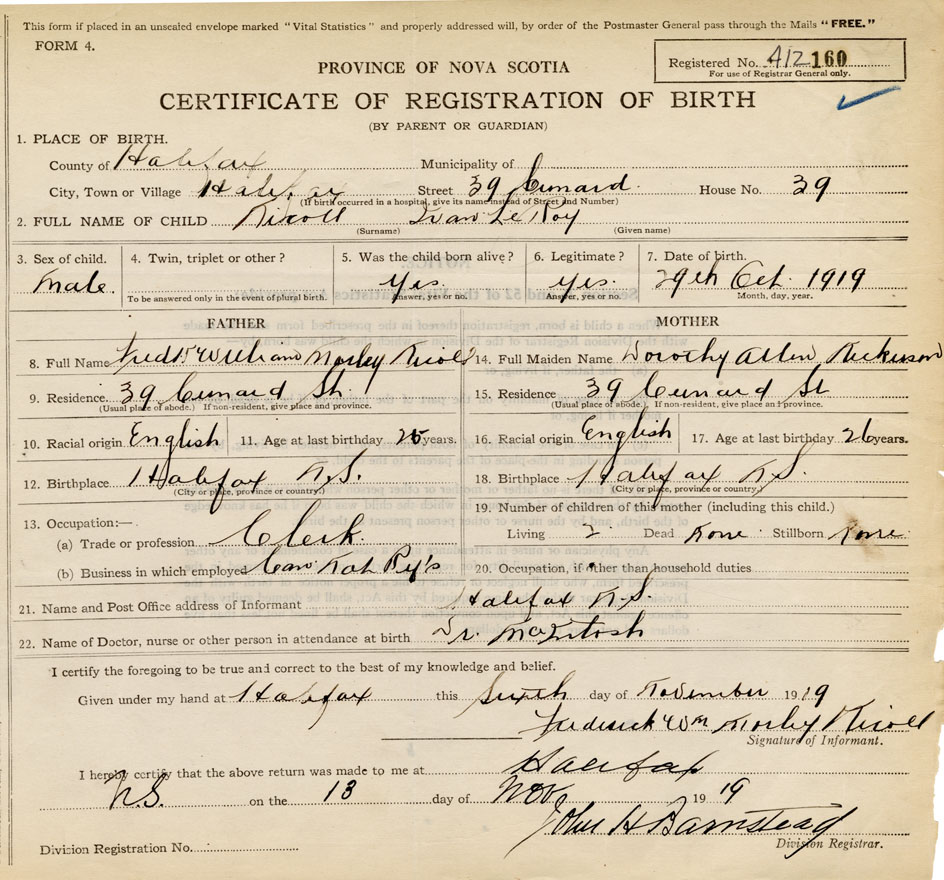 This form if placed in an unsealed envelope marked "Vital Statistics" and properly addressed will, by order of the Postmaster General pass through the Mails "FREE."
FORM 4.
Registered No. 412 160
For use of Registrar General only.
PROVINCE OF NOVA SCOTIA
CERTIFICATE OF REGISTRATION OF BIRTH
(BY PARENT OR GUARDIAN)
1. PLACE OF BIRTH.
County of Halifax Municipality of
City, Town or Village Halifax Street 39 Cunard House No. 39
(If birth occurred in a hospital, give its name instead of Street and Number)
2. FULL NAME OF CHILD Nicoll Ivan Le Roy
(Surname) (Given name)
3. Sex of child. 4. Twin, triplet or other? 5. Was the child born alive? 6. Legitimate? 7. Date of birth?
Male. yes. yes. 29th Oct. 1919
To be answered only in the event of plural birth. Answer, yes or no. Answer, yes or no. Month, day, year.
FATHER MOTHER
8. Full Name Fredk William Morley Nicoll 14. Full Maiden Name Dorothy Allen
9. Residence 39 Cunard St. 15. Residence 39 Cunard St
(Usual place of abode.) If non-resident, give place and province. (Usual place of abode.) If non-resident, give place and province.
10. Racial origin English 11. Age at last birthday 25 years. 16. Racial origin English 17. Age at last birthday 26 years.
12. Birthplace Halifax N.S. 18. Birthplace Halifax N.S.
(City or place, province or country.) (City or place, province or country.)
13. Occupation:— 19. Number of children of this mother (including this child.)
(a) Trade or profession Clerk. Living 2 Dead None Stillborn None
(b) Business in which employed Can Nat Ry's 20. Occupation, if other than household duties
21. Name and Post Office address of Informant Halifax N.S.
22. Name of Doctor, nurse or other person in attendance at birth Dr. McIntosh
I certify the foregoing to be true and correct to the best of my knowledge and belief.
Given under my hand at Halifax this Sixth day of November 1919
Frederick Wm Morley Nicoll
Signature of Informant.
I hereby certify that the above return was made to me at Halifax
N.S. on the 13 day of Nov 1919
John H Barnstead
Division Registrar.
Division Registration No.